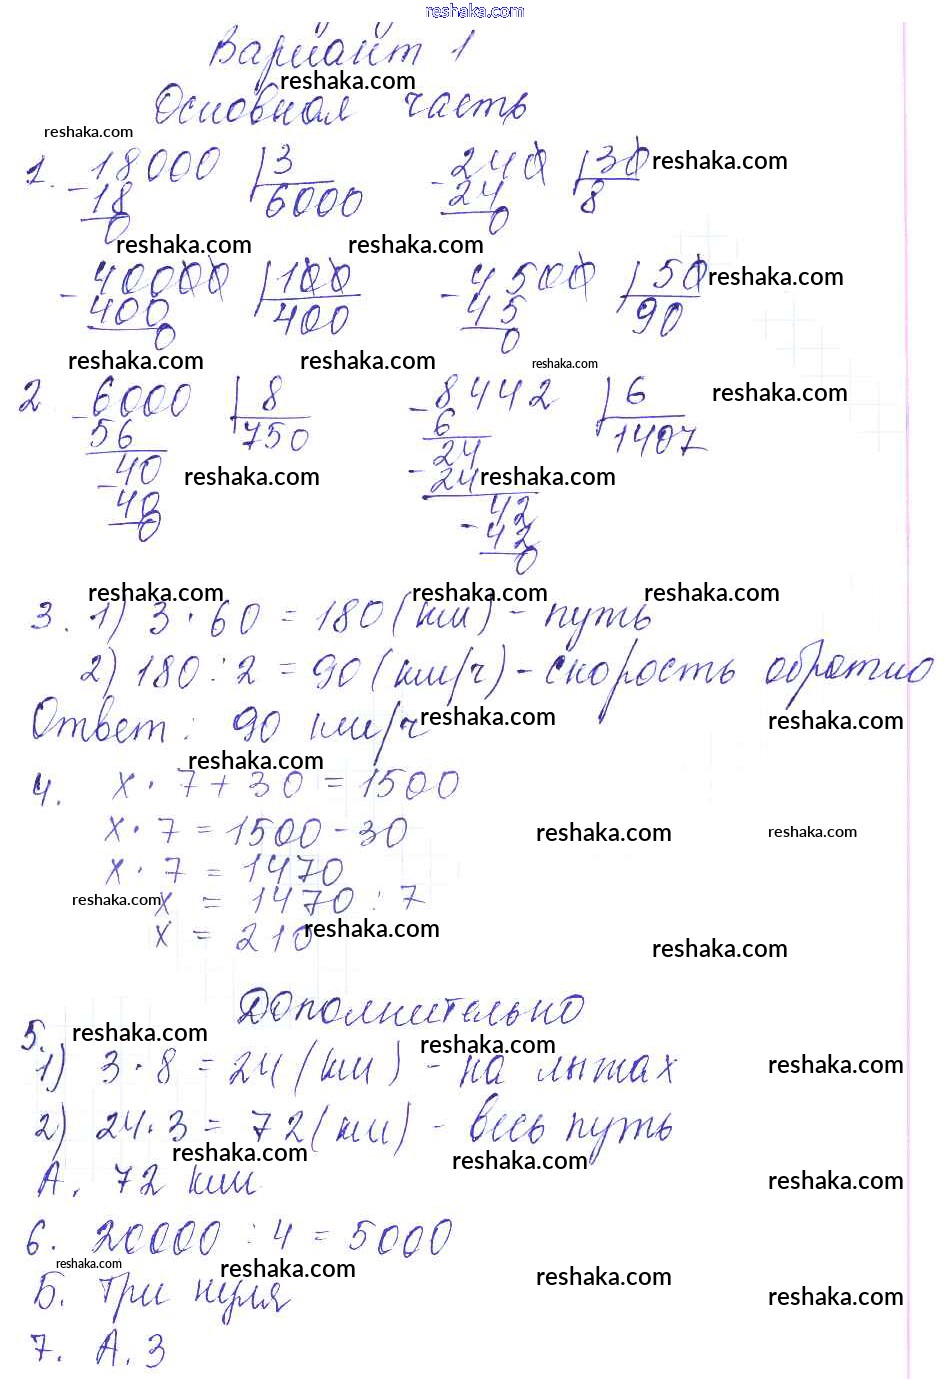 reshaka.com
Варийайт 1
reshaka.com
Основная часть
reshaka.com
1. 18000 | 3 240 | 30 reshaka.com
- 18 6000 - 24 8
0 0
reshaka.com reshaka.com
40000 | 100 4500 | 50 reshaka.com
- 400 400 - 45 90
0 0
reshaka.com reshaka.com reshaka.com
2 6000 | 8 8442 | 6 reshaka.com
- 56 750 - 6 1407
40 24
reshaka.com reshaka.com
- 40 - 24
0 42
- 42
0
reshaka.com reshaka.com reshaka.com
3. 1) 3 · 60 = 180 (км) - путь
2) 180 : 2 = 90 (км/ч) - скорость обратно
Ответ: 90 км/ч reshaka.com reshaka.com
reshaka.com
4. х · 7 + 30 = 1500
х · 7 = 1500 - 30 reshaka.com reshaka.com
х · 7 = 1470
reshaka.com х = 1470 : 7
х = 210 reshaka.com
reshaka.com
Дополнительно
5. reshaka.com reshaka.com
1) 3 · 8 = 24 (км) - на лыжах reshaka.com
2) 24 · 3 = 72 (км) - весь путь
reshaka.com reshaka.com
А. 72 км reshaka.com
6. 20000 : 4 = 5000
reshaka.com reshaka.com reshaka.com
Б. Три нуля reshaka.com
7. А. 3